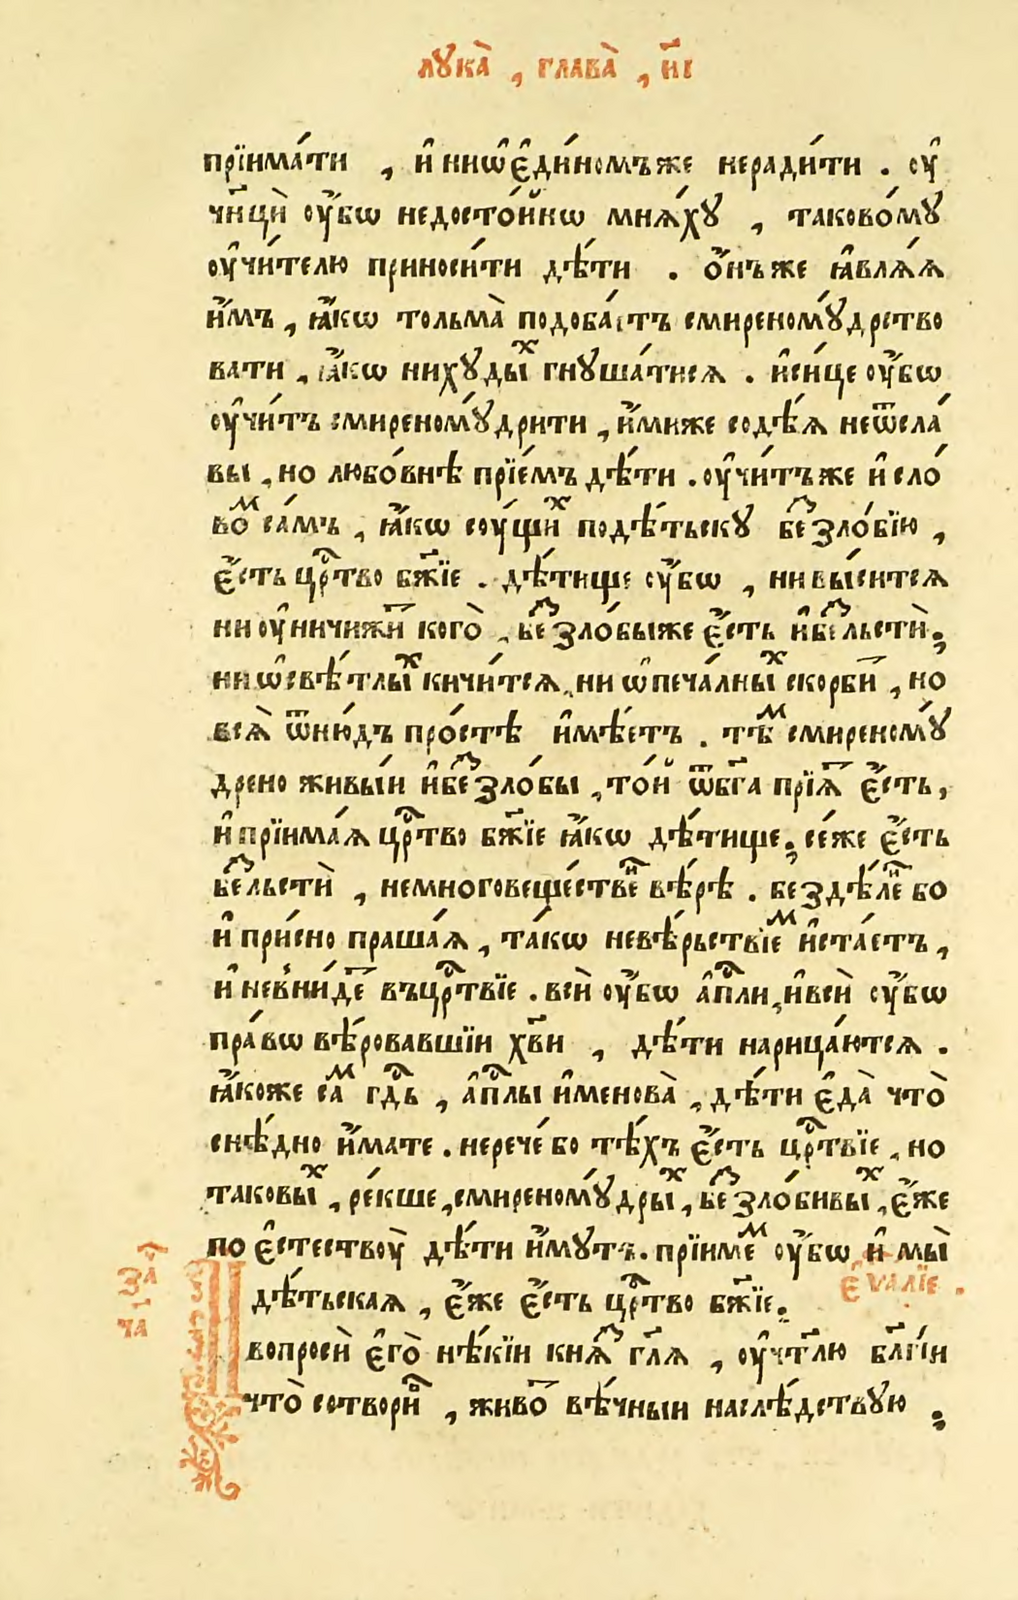 лꙋка̀ , глава̀ , и҃і
прїима́ти , и҆ ниѡ҆є҆ди́номъже неради́ти . оу҆
чн҃цѝ оу҆́бѡ недосто́йнѡ мнѧ́хꙋ , таково́мꙋ
оу҆чи́телю приноси́ти дѣ́ти . ѻ҆́нъже ꙗ҆влѧ́ѧ
и҆́мъ , ꙗ҆́кѡ тольма̀ подоба́етъ смиреномꙋ́дрство
вати , ꙗ҆́кѡ нихꙋды́ⷯ гнꙋша́тисѧ . и҆си́це оу҆́бѡ
оу҆чи́тъ смиреномꙋ́дрити , и҆́миже содѣ́ѧ неѿсла́
вы , но любо́внѣ прїе́мъ дѣ́ти . оу҆чи́тъже и҆ сло́
воⷨ са́мъ , ꙗ҆́кѡ соу́щиⷯ подѣ́тьскꙋ беⷥзло́бїю ,
є҆́сть црⷭ҇тво бж҃їе . дѣ́тище оу҆́бѡ , ни вы́ситсѧ
ни оу҆ничижиⷮ кого̀ , беⷥзло́быже є҆́сть и҆беⷥльсти̑ ;
ни ѡ҆свѣ́тлыⷯ кичи́тсѧ , ни ѡ҆печа́лныⷯ скорбиⷮ , но
всѧ̀ ѿню́дъ про́стѣ и҆мѣ́етъ . тѣⷨ смиреномꙋ́
дрено живы́и и҆беⷥзло́бы , то́й ѿбг҃а прїѧⷮ є҆́сть ,
и҆ прїима́ѧ црⷭ҇тво бж҃їе ꙗ҆́кѡ дѣ́тище ; се́же є҆́сть
беⷥльсти̑ , немноговеще́ствеⷩ҇ вѣ́рѣ . бездѣ́леⷩ҇ бо
и҆ при́сно праша́ѧ , та́кѡ невѣ́рьствїеⷨ и҆ста́етъ ,
и҆ невни́деⷮ въцрⷭ҇твїе . вси̑ оу҆́бѡ а҆пⷭ҇ли , и҆вси̑ оу҆́бѡ
пра́вѡ вѣ́ровавшїи хв҃и , дѣ́ти нарица́ютсѧ .
ꙗ҆́коже саⷨ гдⷭ҇ь , а҆пⷭ҇лы и҆менова̀ , дѣ́ти є҆да̀ что̀
снѣ́дно и҆́мате . нерече́ бо тѣ́хъ є҆́сть црⷭ҇твїе , но
таковы́ⷯ , ре́кше , смиреномꙋ́дрыⷯ , беⷥзло́бивыⷯ , є҆́же
по є҆стествоу̀ дѣ́ти и҆́мꙋтъ . прїимеⷨ оу҆́бѡ и҆ мы̀
дѣ́тьскаѧ , є҆́же є҆́сть црⷭ҇тво бж҃їе .
є҆ѵалїе .
заⷱ
ча
вопроси̑ є҆го̀ нѣ́кїи кнѧⷥ гл҃ѧ , оу҆чт҃лю бл҃гїи
что̀ сотвориⷡ҇ , живоⷮ вѣ́чныи наслѣ́дствꙋю ;